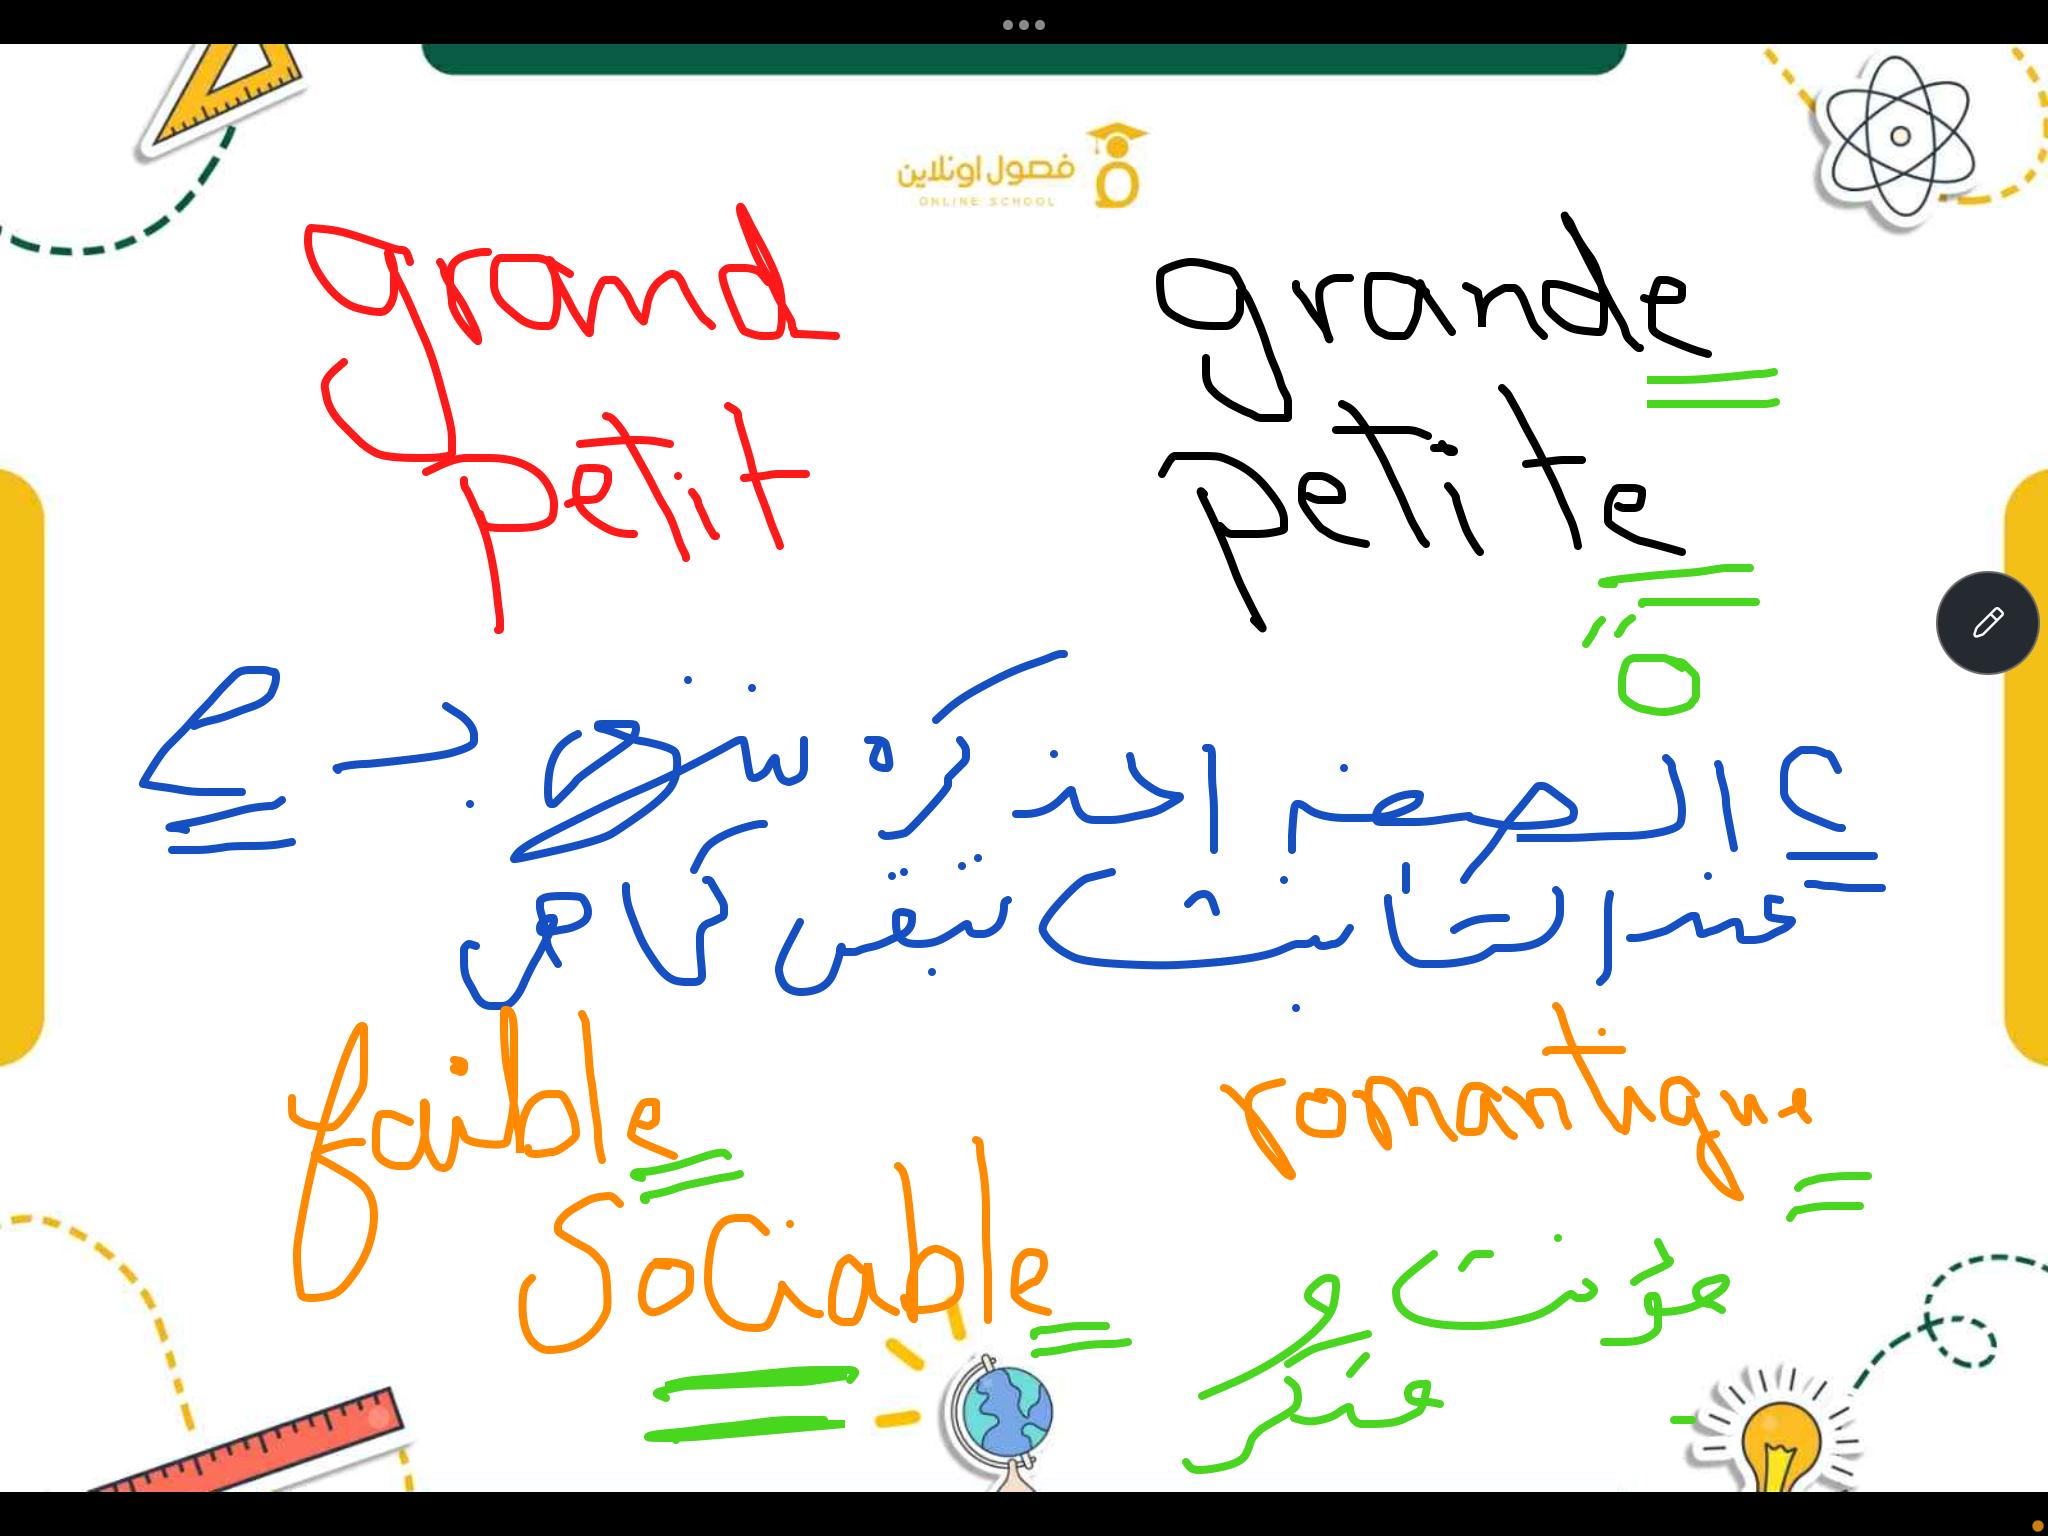 فصول اونلاين
ONLINE SCHOOL
grand grande
petit petite
٢ الصفة المذكرة تنتهي بـ e
عند التأنيث تبقى كما هي
faible romantique
sociable
مؤنث و
مذكر